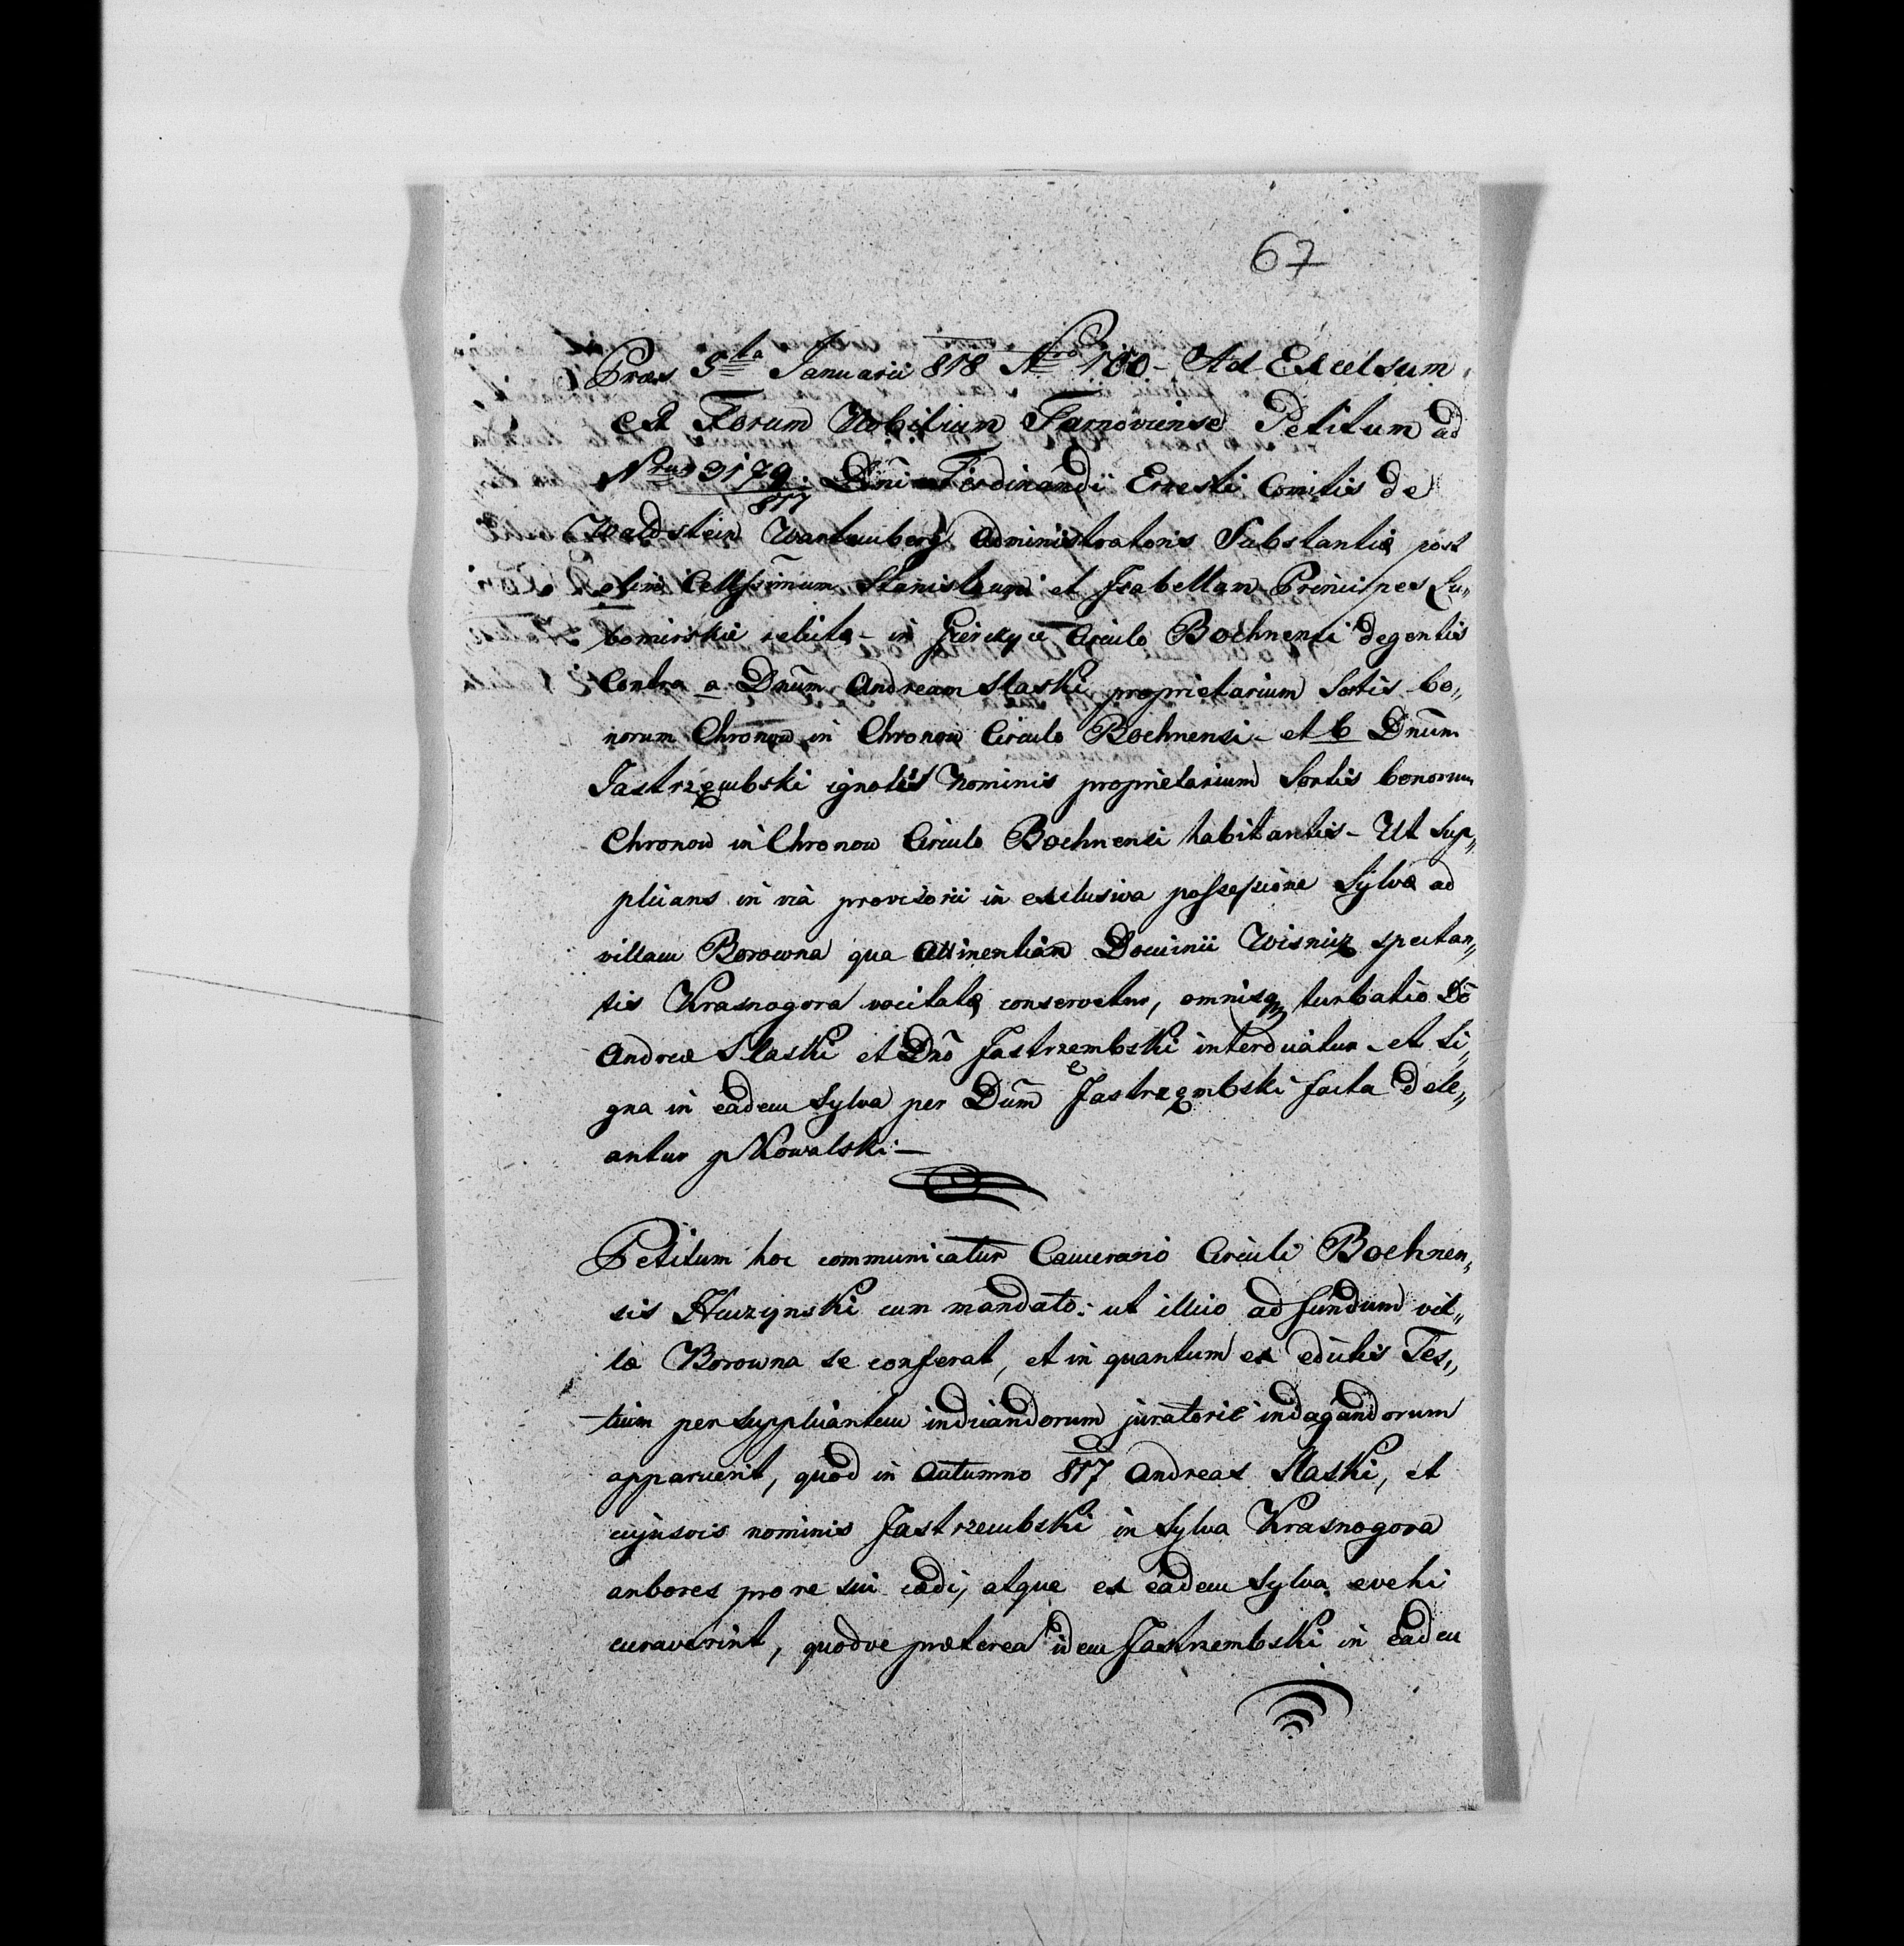 67
Præs 5ta Januarii 818 Nro 180 - Ad Excelsum
CR Forum Nobilium Tarnoviense Petitum ad
Nrum 3179/817. Dñi Ferdinandi Ernesti Comitis de
Waldstein Wartemberg Administratoris Substantiæ post
olim Celssimum Stanislaum et Isabellam Principes Lu„
bomirskie relictæ - in Circulo Bochnensi degentis
Contra a Dnum Andream Slaski proprietarium Sortis bo„
norum Chronow in Chronow Circulo Bochnensi - et b Dnum
Jastrzęmbski ignoti Nominis proprietarium Sortis bonorum
Chronow in Chronow Circulo Bochnensi habitantis - Ut Sup„
plicans in via provisorii in exclusiva possessione Sylvæ ad
villam Borowna qua Attinentiam Dominii Wisnicz spectan„
tis Krasnogora vocitatæ conservetur, omnisq turbatio Dō
Andreæ Slaski et Dnō Jastrzembski interdicatur - et Si„
gna in eadem Sylva per Dum Jastrzęmbski facta dele„
antur p Kowalski —
Petitum hoc communicatur Camerario Circuli Bochnen„
sis cum mandato: ut illico ad fundum vil„
læ Borowna se conferat, et in quantum ex edictis Tes„
tium per Supplicantem indicandorum juratorie indagandorum
apparuerit, quod in Autumno 817 Andreas Slaski, et
cujusvis nominis Jastrzembski in Sylva Krasnogora
arbores pro re sui cædi, atque ex eadem Sylva evehi
curaverint, quodve præterea idem Jastrzembski in eadem